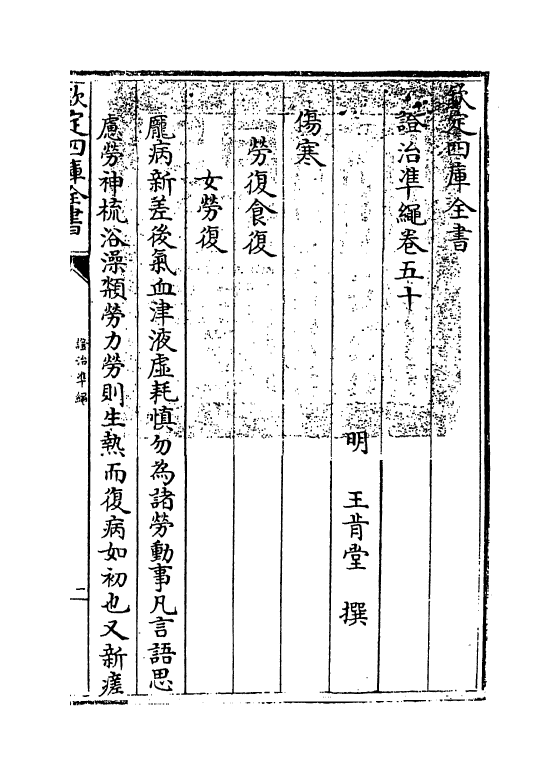 欽定四庫全書
證治準繩卷五十
明 王肯堂 撰
傷寒
勞復食復
女勞復
龎病新差後氣血津液虛耗慎勿為諸勞動事凡言語思
慮勞神梳浴澡頮勞力勞則生熱而復病如初也又新瘥
欽定四庫全書
證治準繩
二